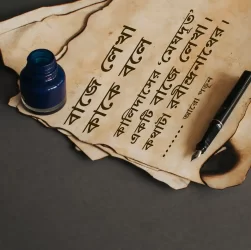 বাজে লেখা
কাকে বলে
কালিদাসের মেঘদূত
একটি বাজে লেখা।
কথাটা রবীন্দ্রনাথের।
আরো পড়ুন